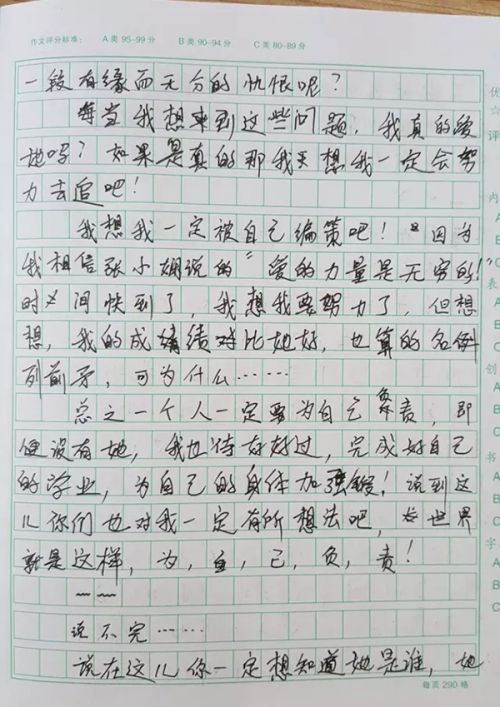 作文评分标准： A类 95-99分 B类 90-94分 C类 80-89分
一段有缘而无分的仇恨呢？
每当我想来到这些问题，我真的爱
她吗？如果是真的那我想我一定会努
力去追吧！
我想我一定被自己鞭策吧！因为
我相信张小娴说的“爱的力量是无穷的！
时间快到了，我想我要努力了，但想
想，我的成绩对比她好，也算的名例
列前矛，可为什么……
总之一个人一定要为自己负责，即
便没有她，我也得好好过，完成好自己
的学业，为自己的身体加强锻！说到这
儿你们也对我一定有所想法吧，世界
就是这样，为，自，己，负，责！
——
说不完……
说在这儿你一定想知道她是谁，她
每页290格
优
☆
评
内
A
B
C
表
A
B
C
创
A
B
C
书
A
B
C
字
A
B
C